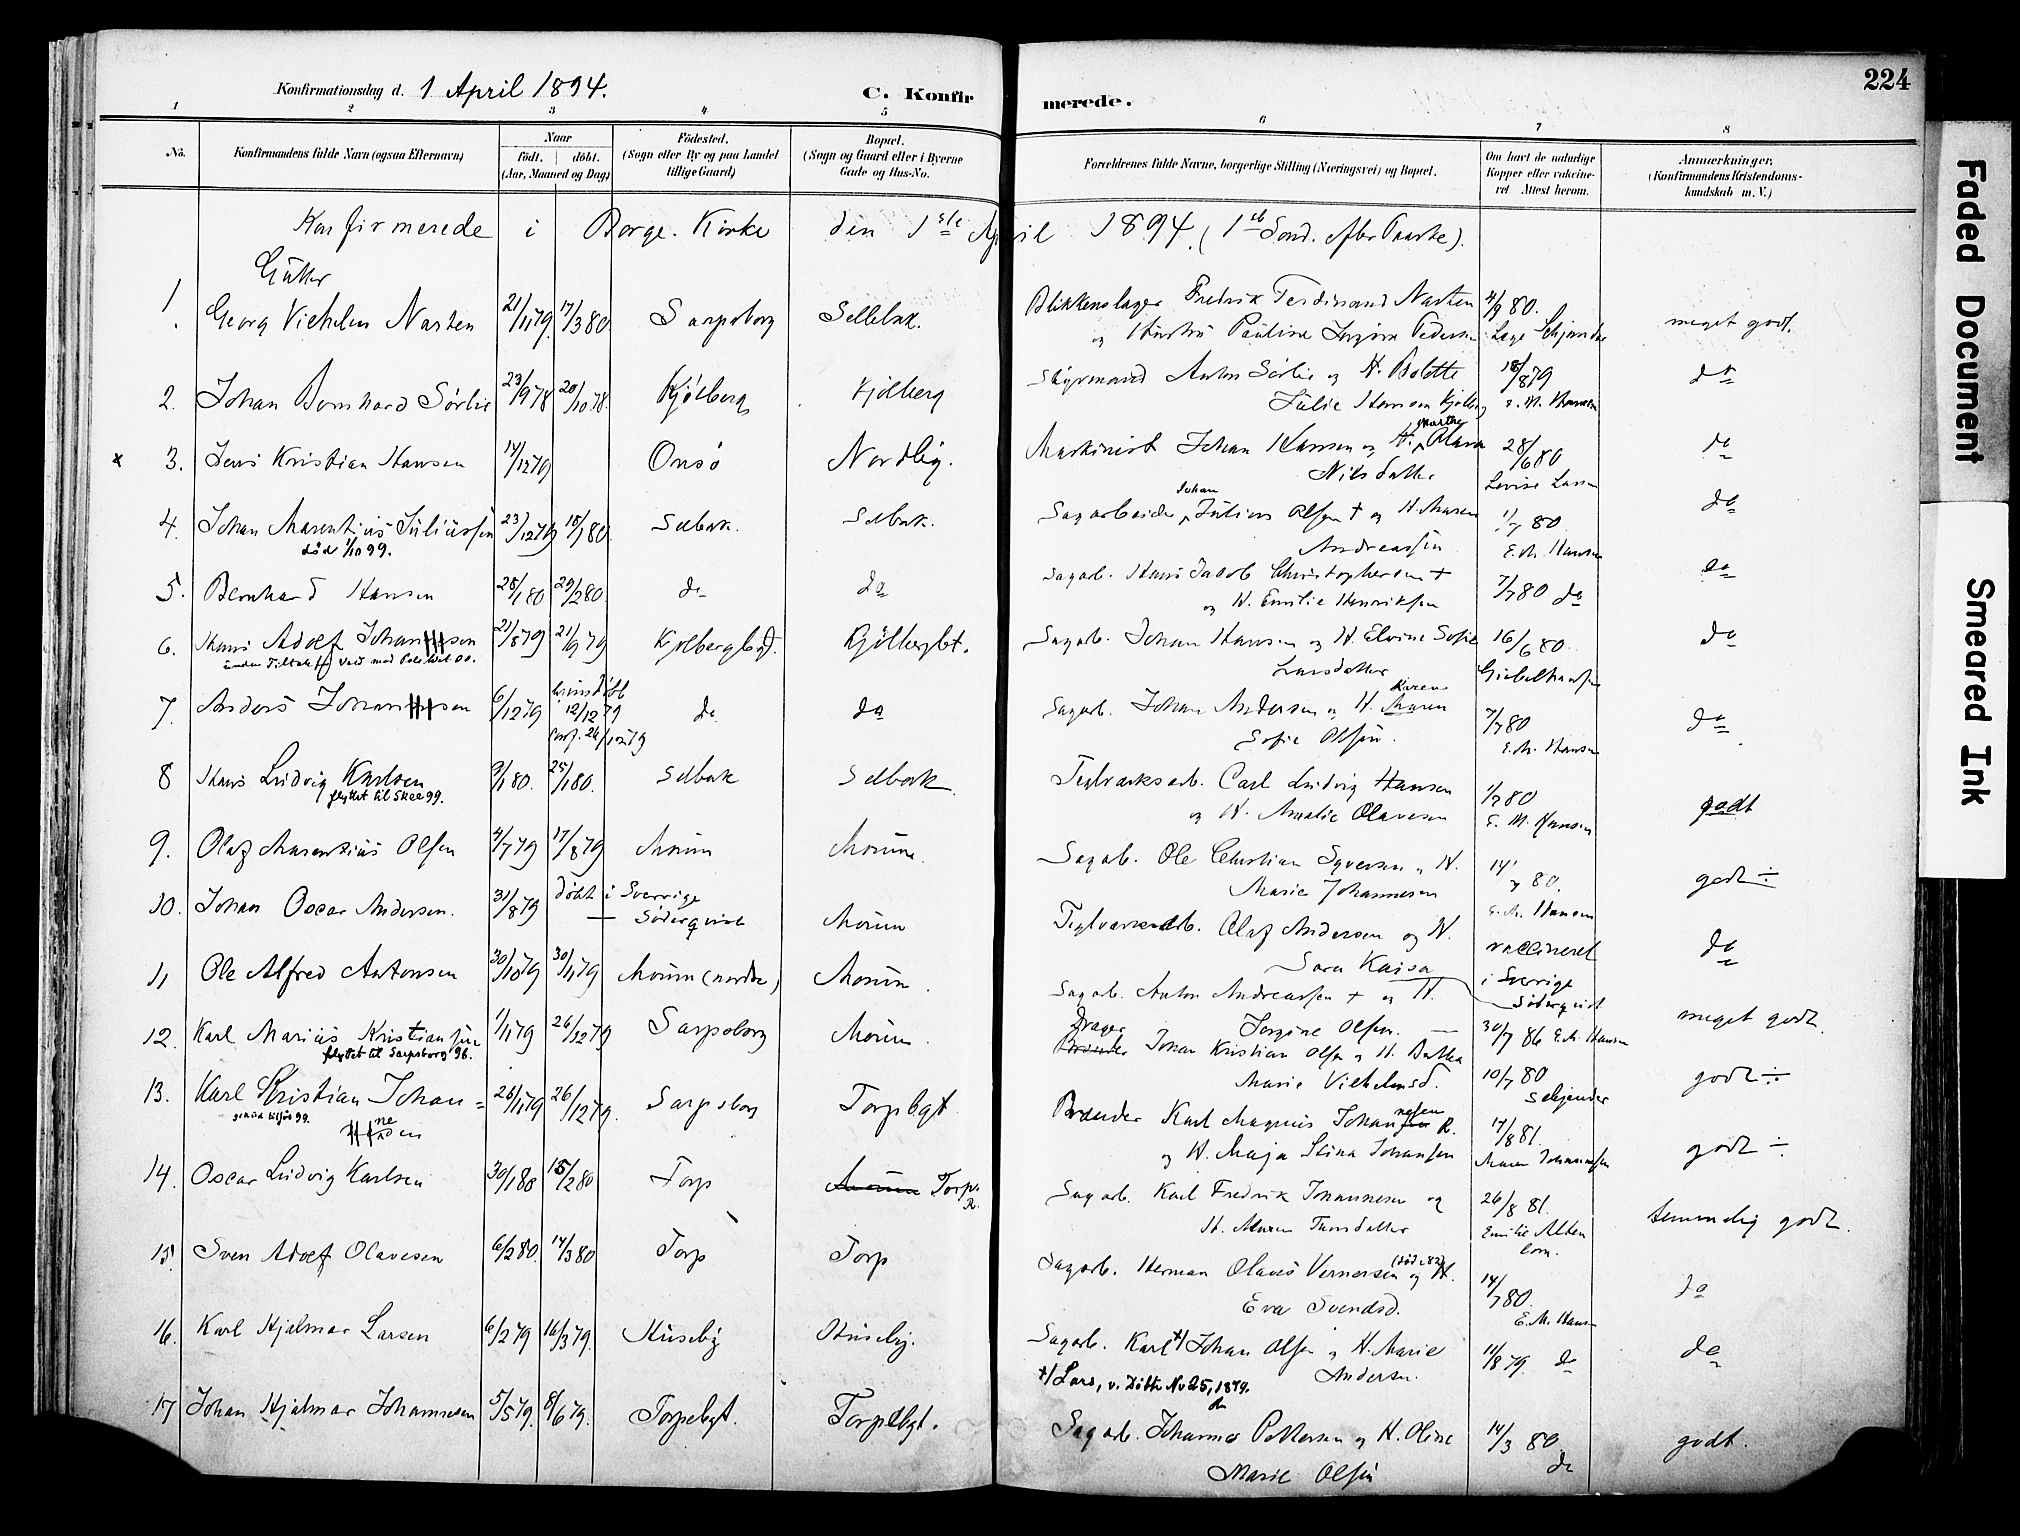 Konfirmationsdag d. 1 April 1894.
C. Konfirmerede.
224
1 2 3 4 5 6 7 8
No.
Konfirmandens fulde Navn (ogsaa Efternavn)
Naar
født. døbt.
(Aar, Maaned og Dag)
Fødested.
(Sogn eller By og paa Landet
tillige Gaard)
Bopæl.
(Sogn og Gaard eller i Byerne
Gade og Hus-No.
Forældrenes fulde Navne, borgerlige Stilling (Næringsvei) og Bopæl.
Om havt de naturlige
Kopper eller vakcine-
ret Attest herom.
Anmærkninger.
(Konfirmandens Kristendoms-
kundskab m. V.)
Konfirmerede i Borge Kirke den 1ste April 1894 (1ste Sønd. efter Paaske).
Gutter
1. Georg Vilhelm Narten 21/11 79. 17/3 80 Sarpsborg Sellebak. Blikkenslager Fredrik Ferdinand Narten 4/9 80. meget godt.
og Hustru Pauline Jørgine Pedersen
2. Johan Bernhard Sørlie 23/9 78 20/10 78. Kjølberg Kjølberg Styrmand Anton Sørlie og H. Bolette 18/8 79 do
Julie Hansen Kjølberg E. M. Hansen
x 3. Jens Kristian Hansen 14/12 79 Onsø Nordby. Maskinist Johan Hansen og H. Marthe Olava 28/6 80 do
Nilsdatter Lovise Larsen
4. Johan Marentius Juliussen 23/12 79 18/1 80. Selbak. Selbak. Sagarbeider Johan Julius Olsen + og H. Maren 1/7 80. do
død 1/10 99. Andreassen E. M. Hansen
5. Bernhard Hansen 28/1 80 29/2 80. do do Sagarb. Hans Jacob Christophersen + 7/7 80 do do
og H. Emilie Henriksen
6. Hans Adolf Johansen 21/8 79 21/9 79 Kjølbergbgt. Kjølbergbgt. Sagarb. Johan Hansen og H. Elvine Sofie 16/6 80. do
Larsdatter
7. Anders Johansen 6/12 79 12/12 79 do do Sagarb. Johan Andersen og H. Karen 7/7 80 do
26/12 79 Sofie Olsen. E. M. Hansen
8 Hans Ludvig Karlsen 2/1 80. 25/1 80. Selbak Selbak Teglværksarb. Carl Ludvig Hansen 1/7 80 godt
flyttet til Skee 99. og H. Amalie Olavesen E. M. Hansen
9. Olaf Marentius Olsen 4/7 79 17/8 79 Moum Moum. Sagarb. Ole Christian Syversen og H. 14/7 80. godt ÷
Marie Johannesen E. M. Hansen
10. Johan Oscar Andersen. 31/8 79 døbt i Sverrige Moum Teglværksarb. Olaf Andersen og H. vaccineret do
— Söderqvist Sara Kaisa i Sverrige
Söderqvist
11 Ole Alfred Antonsen 30/10 79 30/11 79 Moum (nordre) Moum. Sagarb. Anton Andreassen + og H. meget godt.
Jørgine Olsen. — 30/7 86 E. M. Hansen
12. Karl Marius Kristiansen 1/11 79 26/12 79 Sarpsborg Moum. Drager Johan Kristian Olsen og H. godt ÷
flyttet til Sarpsborg 96. Marie Vilhelmsd. 10/7 80
13. Karl Kristian Johan= 26/11 79 26/12 79. Sarpsborg Torpbgt. Brænder Karl Magnus Johannesen R. 17/8 81. godt ÷
nesen og H. Maja Stina Johansen Maren Johannessen
14. Oscar Ludvig Karlsen 30/1 80 15/2 80 Torp Moum Torp. R. Sagarb. Karl Fredrik Johannesen og 26/8 81. temmelig godt.
H. Maren Thorsdatter
15. Sven Adolf Olavesen 6/2 80. 14/3 80 Torp Torp Sagarb. Herman Olaus Vernersen (død i 82) og H. 14/7 80. do
Eva Svendsd. E. M. Hansen
16. Karl Hjalmar Larsen 6/2 79 16/3 79. Huseby Huseby. Sagarb. Karl x/ Johan Olsen og H. Marie 11/8 79. do do
x/ Lars, v. Døbte No 25, 1879. Andersen.
17 Johan Hjalmar Johannesen 5/5 79. 8/6 79. Torpebgt. Torpebgt. Sagarb. Johannes Pettersen og H. Oline 14/3 80. godt.
Marie Olsen do
Faded Document
Smeared Ink